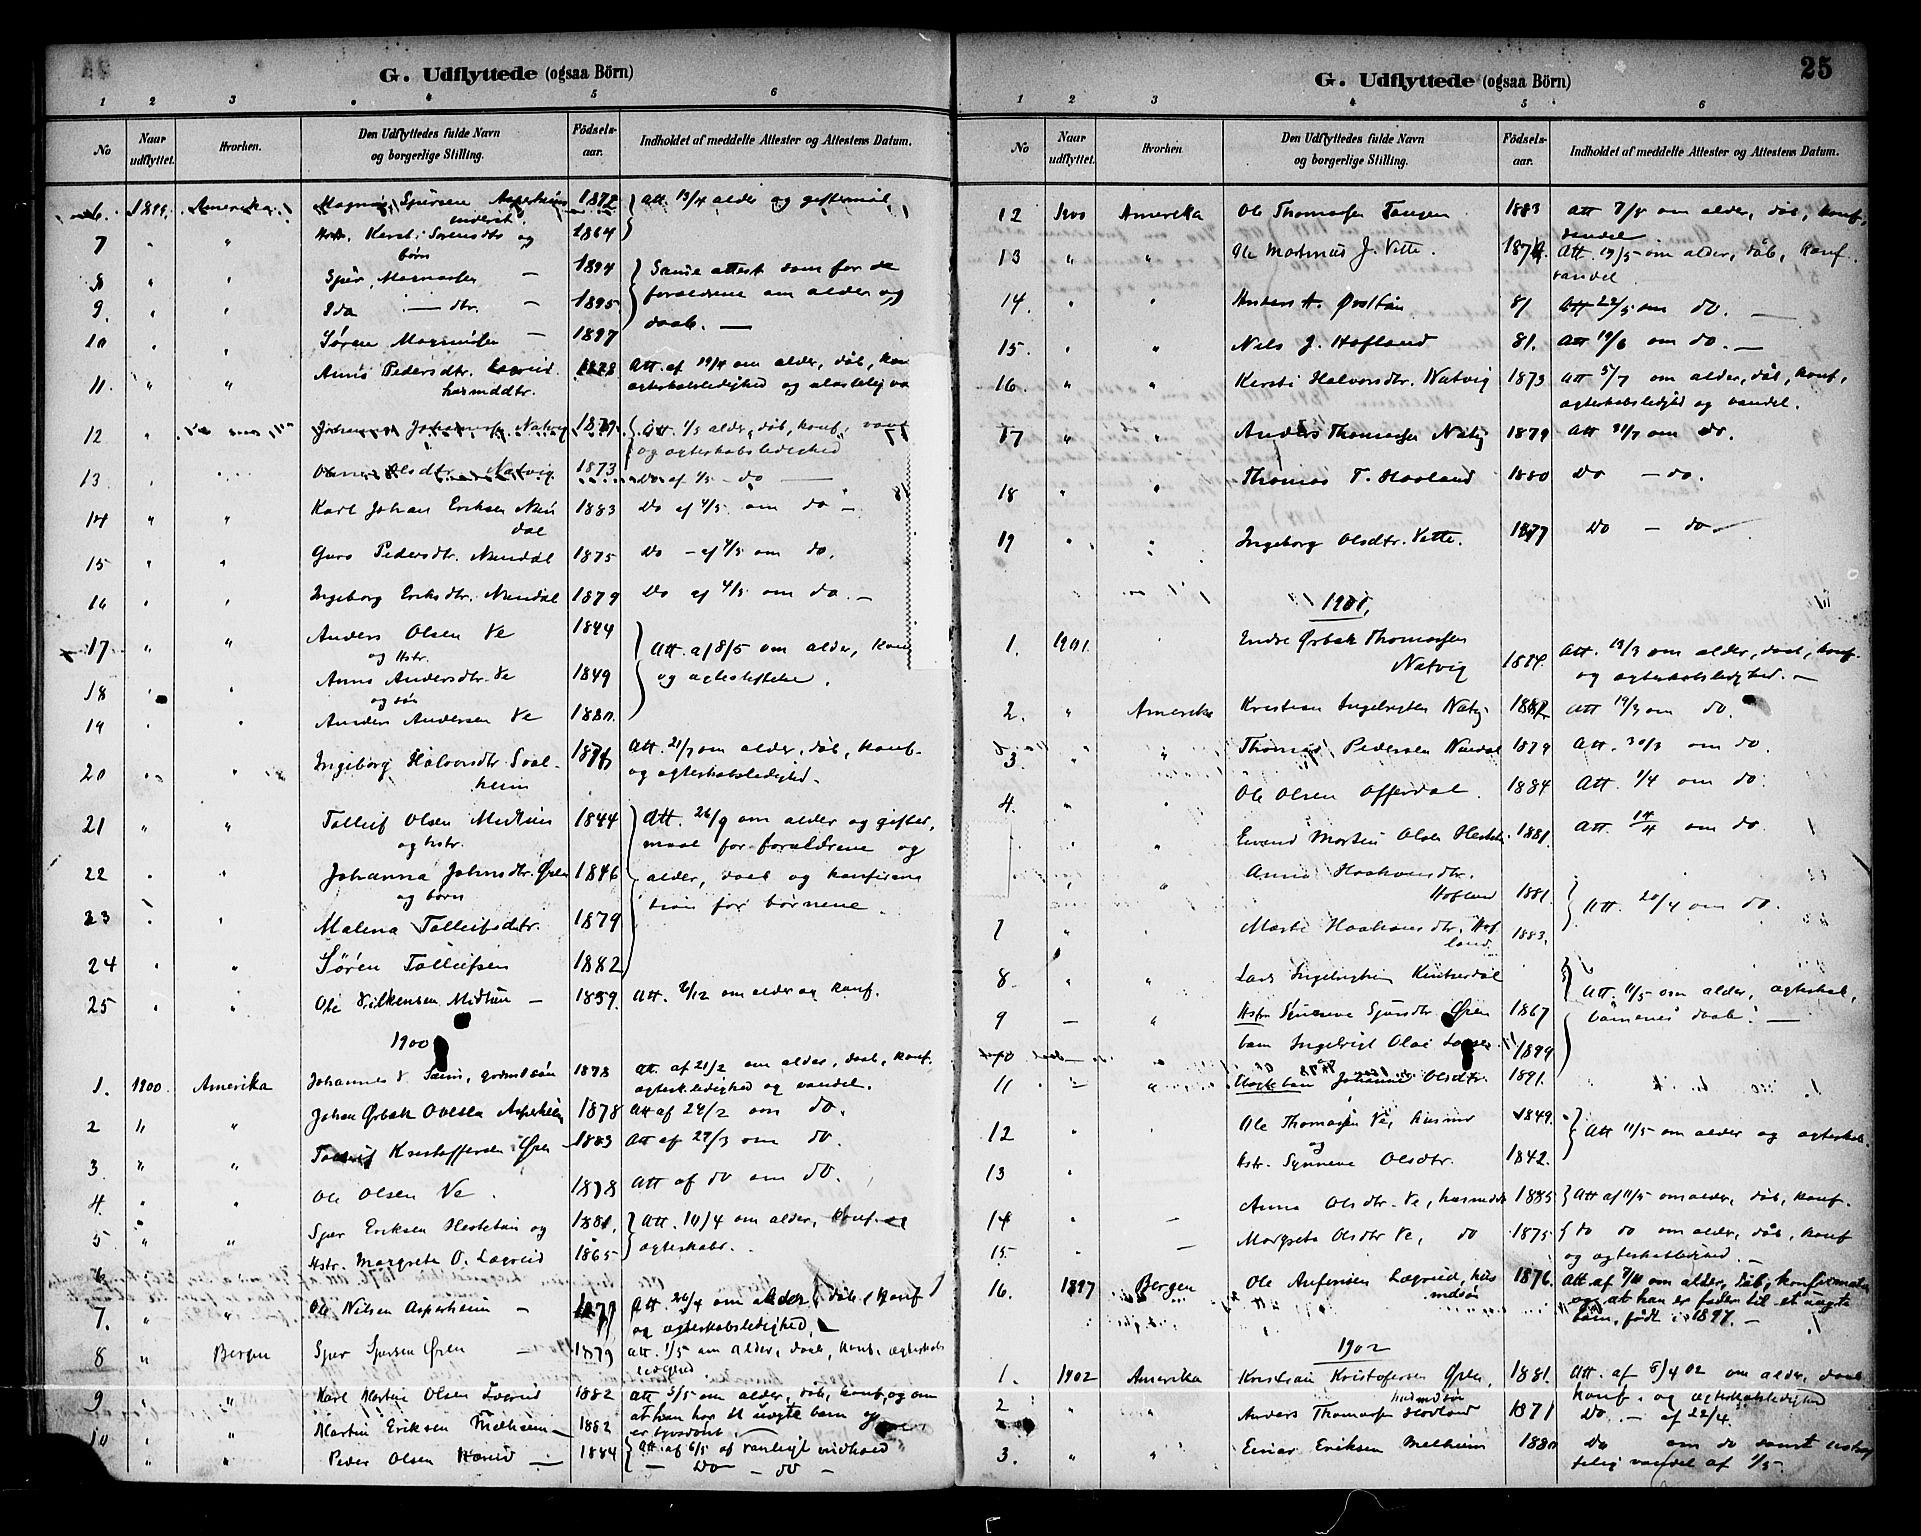 G. Udflyttede (ogsaa Börn)
1 2 3 4 5 6
No Naar udflyttet. Hvorhen. Den Udflyttedes fulde Navn og borgerlige Stilling. Födselsaar. Indholdet af meddelte Attester og Attestens Datum.
6. 1899. Amerika. Magnus Sjursen Asperheim 1872 Att. 13/4 alder og giftermål
7 " " Kersti Sørensdtr og 1864
børn
8 " " Sjur Magnusen — 1894 Samme attest som for de
9. " " Ida —"— dtr. — 1895 foraldrene om alder og
daab. —
10 " " Søren Magnusen — 1897
11. " " Anna Pedersdtr. Lægreid 1878 Att. af 19/4 om alder, dåb, kon
husmddtr. agteskabsledighed og
12 " Johannes Johannesen Natvig 1879 Att. 1/5 alder, dåb, konf.
og agteskabsledighed
13 " " Olsdtr. Natvig 1873 Do af 1/5 — do —
14 " " Karl Johan Eriksen Nun 1883 Do af 4/5 om do —
dal
15 " " Guro Pedersdtr. Nundal 1875 Do — af 4/5 om do.
16 " " Ingeborg Eriksdtr. Nundal 1879 Do af 4/5 om do. —
17 " " Anders Olsen Ve 1844 Att. af 8/5 om alder, konf
og Hstr.
18 " " Anna Andersdtr. Ve 1849 og agteskab
og søn
19 " " Anders Andersen Ve 1880.
20 " " Ingeborg Halvorsdtr. Sval- 1876 Att. 21/7 om alder, dåb, konf.
heim og agteskabsledighed.
21 " " Tolleif Olsen Midtun 1844 Att. 26/9 om alder og gifter,
og hstr. maal for foraldrene og
22 " " Johanna Johnsdtr. Øren 1846 alder, daab og konfirma
og børn tion for børnene.
23 " " Malena Tolleifsdtr. 1879
24 " " Søren Tolleifsen 1882
25 " " Ole Vilkensen Midtun — 1859 Att. 2/12 om alder og konf.
1900
1. 1900. Amerika Johannes Sæim, grdmdsøn 1878 Att. af 21/2 om alder, daab, konf.
agtesk.ledighed og vandel.
2 " " Johan Ørbæk Olsen Asperheim 1878 Att af 24/2 om do.
3. " " Tolleif Kristoffersen Øren 1883 Att af 27/3 om do.
4. " " Ole Olsen Ve. 1878 Att af do om do.
5 " " Sjur Eriksen Hestetun og 1881. Att. 10/4 om alder, konf. og
6 Hstr. Margrete O. Lægreid 1865 agteskab.
7. " " Ole Nilsen Asperheim — 1877 Att. 26/4 om alder, dåb, konf
og agteskabsledighed,
8 " Bergen Sjur Sjursen Øren — 1879 Att. 1/5 om alder, daab, konf. agteskabs
ledighed
9 " " Karl Martin Olsen Lægreid 1882 Att 3/5 om alder, dåb, konf. og om
at han har et uægte barn
10 " " Martin Eriksen Melheim — 1882
" " Peder Olsen Hæreid — 1884 Att. af 6/5 af vanligt indhold
— Do — do —
G. Udflyttede (ogsaa Börn) 25
1 2 3 4 5 6
No Naar udflyttet. Hvorhen. Den Udflyttedes fulde Navn og borgerlige Stilling. Födselsaar. Indholdet af meddelte Attester og Attestens Datum.
12 1900 Amerika Ole Thomassen Tangen 1883 Att 7/5 om alder, dåb, konf,
vandel
13 " " Ole Mortmud J. Vette. 1874. Att. 19/5 om alder, dåb, konf.
vandel
14. " " Anders A. Øvsttun 81 Att 22/5 om do. —
15. " " Nils J. Hofland 81. Att 19/6 om do. —
16. " " Kersti Halvorsdtr. Natvig 1873 Att 5/7 om alder, dåb, konf,
agteskabsledighed og vandel.
17 " " Anders Thomassen Natvig 1879 Att 21/7 om do.
18 " " Thomas T. Hovland 1880 Do — do.
19 " " Ingeborg Olsdtr. Vette. 1877 Do — do
1901.
1. 1901. Endre Ørbæk Thomassen
Natvig 1884. Att. 19/3 om alder, daab, konf.
og agteskabsledighed. —
2. " Amerika Kristian Ingebrigtsen Natvig 1882 Att 19/3 om do.
3 " " Thomas Pedersen Nundal 1879 Att. 30/3 om do.
4. " " Ole Olsen Offerdal. 1884 Att. 1/4 om do.
" Eivind Martin Olsen Hestetun 1881. Att. 14/4 om do.
" " Anna Haakonsdtr.
Hofland 1881. Att. 20/4 om do.
7 " " Marte Haakonsdtr. Hof
land. 1883.
8 " " Lars Ingebrigtsen Kinserdal Att. 11/5 om alder, agteskab,
9 — " Hstr. Synneve Sjursdtr. Øren 1867 børnenes daab. —
" barn Ingebrigt Olai Larsen 1899
11 — " Johanne Olsdtr. 1891.
12 " Ole Thomassen Ve, husmd 1849. Att 11/5 om alder og agteskab.
og
13 " Hstr. Synneve Olsdtr. 1842.
14 " — Anna Olsdtr. Ve, husmddt 1885 Att af 11/5 om alder, dåb, konf.
15. " — Margrete Olsdtr Ve, do 1875 do do om alder, dåb, konf
og agteskabledighed. —
16. 1897 Bergen Ole Anfinsen Lægreid, hus 1876. Att af 9/11 om alder, dåb, konfirmation
mdsøn og at han er fader til et uægte
barn, født i 1897. —
1902
1. 1902 Amerika Kristian Kristofersen Øren, 1881. Att. af 8/4 02 om alder, daab
husmdsøn konf. og agteskabsledighed
2 " " Anders Thomassen Hovland 1871 Do. — af 22/4.
3. " " Einar Eriksen Melheim 1880 Do om do samt ustraf
felig vandel af 1/5.